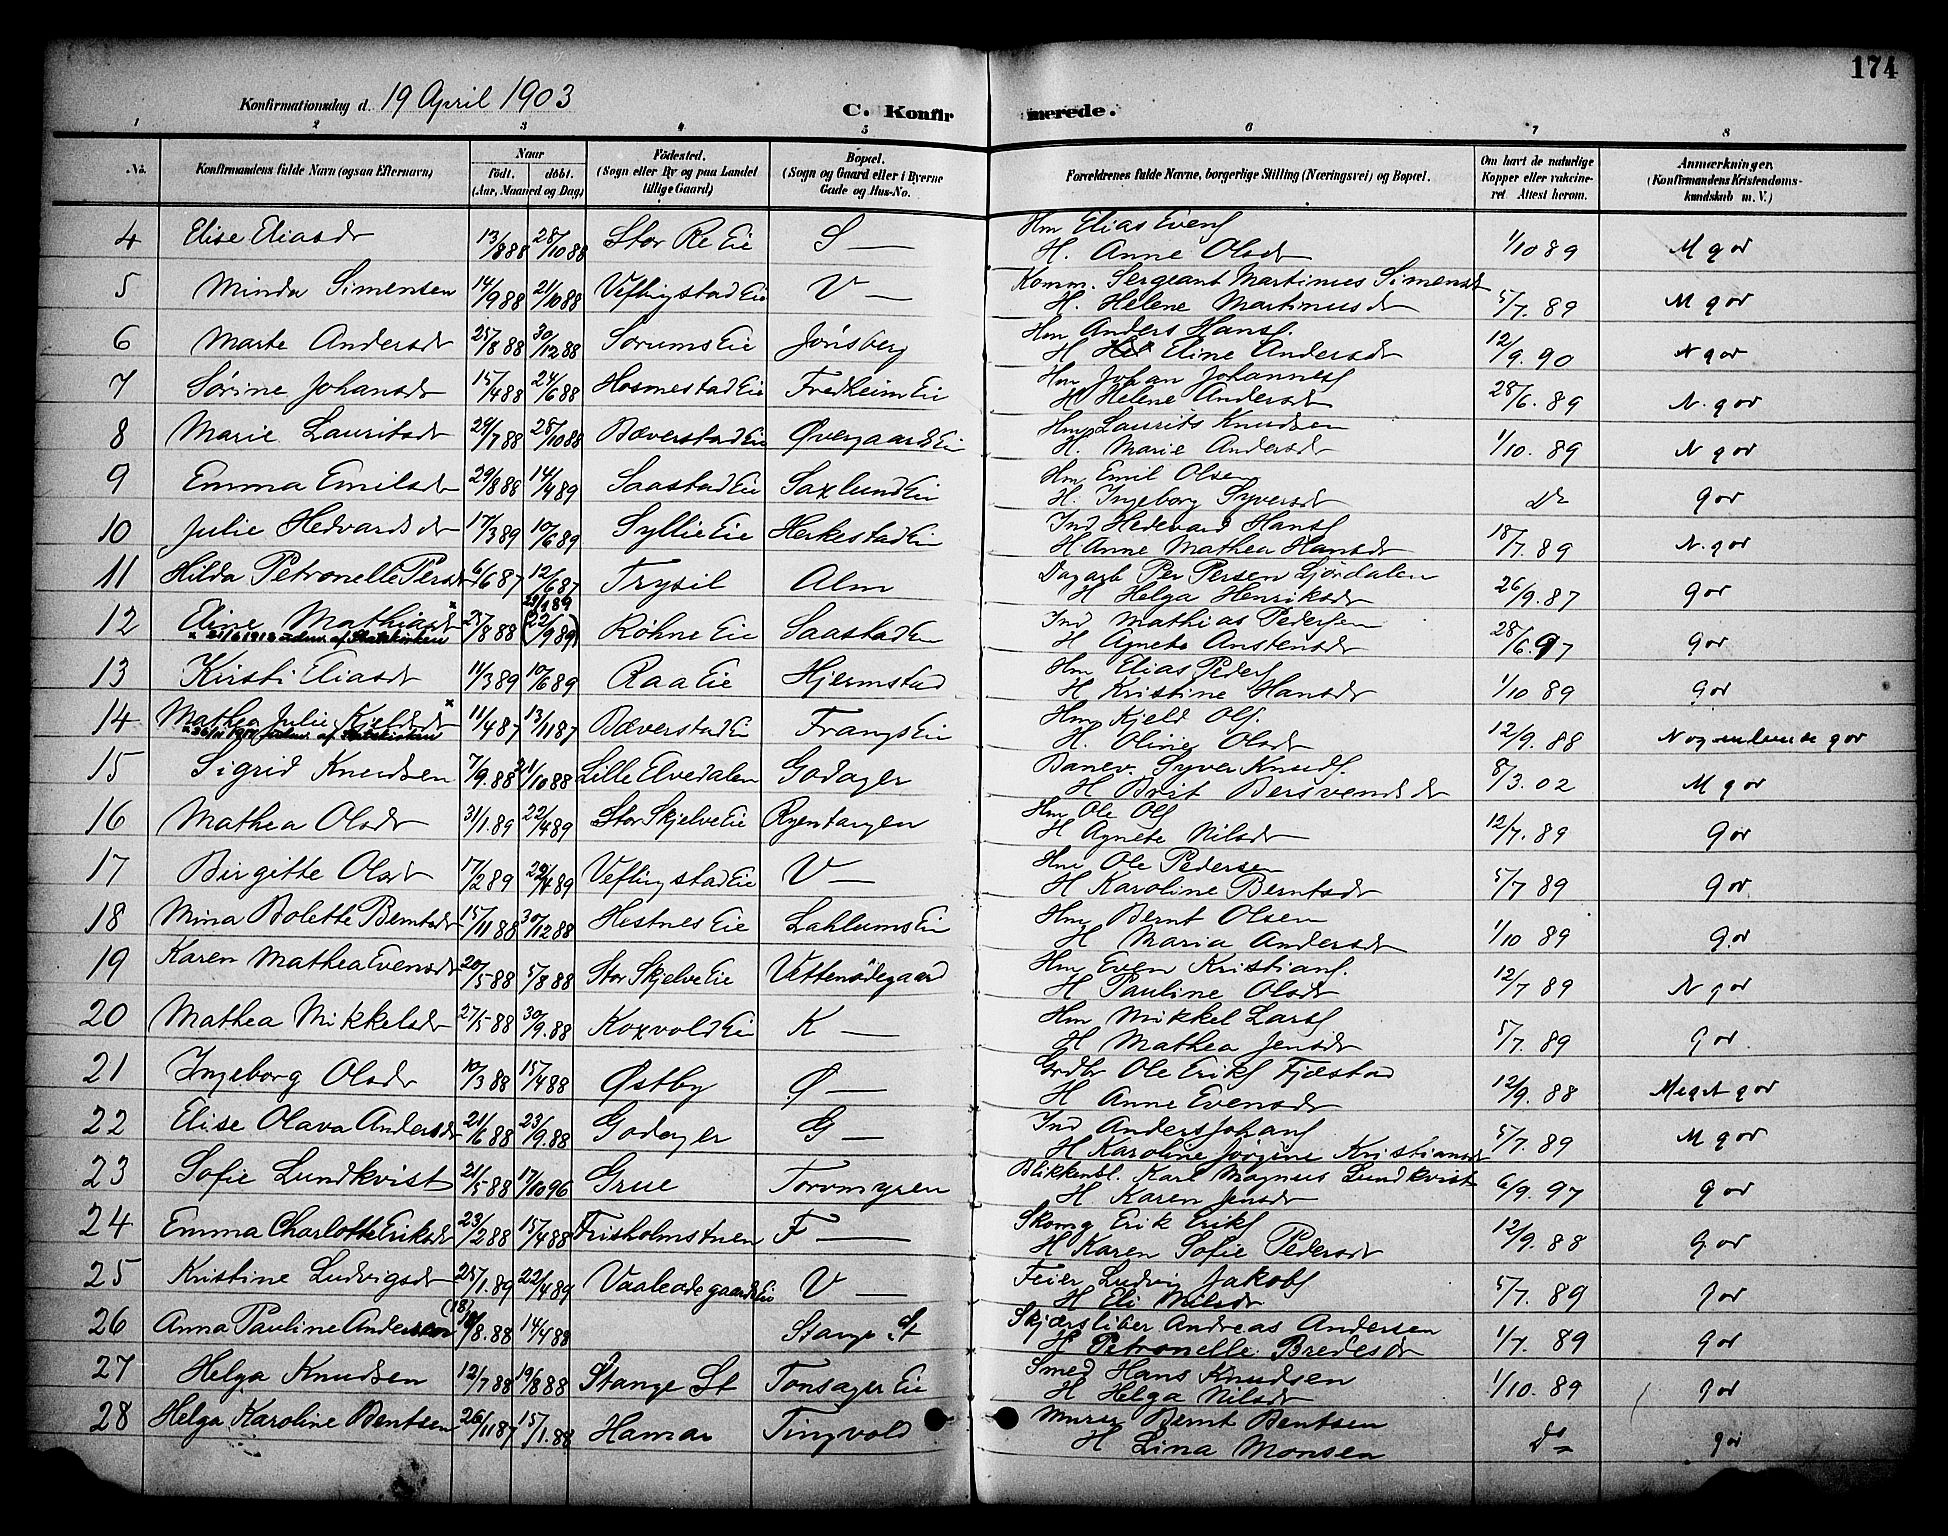 174
Konfirmationsdag d. 19 April 1903
C. Konfirmerede.
1 2 3 4 5 6 7 8
No. Konfirmandens fulde Navn (ogsaa Efternavn) Naar født. døbt. (Aar, Maaned og Dag) Fødested. (Sogn eller By og paa Landet tillige Gaard) Bopæl. (Sogn og Gaard eller i Byerne Gade og Hus-No. Forældrenes fulde Navne, borgerlige Stilling (Næringsvei) og Bopæl. Om havt de naturlige Kopper eller vakcineret Attest herom. Anmærkninger, (Konfirmandens Kristendomskundskab m. V.)
4 Elise Eliasdr 13/8 88 28/10 88 Stor Re Eie S — Hm Elias Evens. H. Anne Olsdr 1/10 89 M gor
5 Minda Simensen 14/9 88 21/10 88 Veflingstad Eie V — Komm. Sergeant Martinus Simens. H. Helene Martinusdr 5/7. 89 M gor
6 Marte Andersdr 25/8 88 30/12 88 Sørums Eie Jønsberg Hm Anders Hans. H Eline Andersdr 12/9. 90 N gor
7 Sørine Johansdr 15/4 88 24/6 88 Hosmestad Eie Fredheim Eie Hm Johan Johannes. H Helene Andersdr 28/6. 89 N. gor
8 Marie Lauritsdr 29/7 88 28/10 88 Bæverstad Eie Øvergaards Ei Hm Laurits Knudsen H. Marie Andersdr 1/10. 89 N gor
9 Emma Emilsdr 29/8 88 14/4 89 Saastad Eie Saxlund Ei Hm Emil Olsen H. Ingeborg Syversdr Do gor
10 Julie Hedvardsdr 17/3 89 10/6 89 Syllie Eie Herkestad Ei Ind Hedevard Hans. H. Anne Mathea Hansdr 18/7. 89 N. gor
11 Hilda Petronelle Persdr 6/6 87 12/6 87 Trysil Alm Dagarb Per Persen Ljørdalen H Helga Henriksdr 26/9. 87 gor
12 Eline Mathiasdr x 25/8 88 (22/9 89) Røhne Eie Saastad Ei Ind Mathias Pedersen H Agnete Anstensdr 28/6. 97 gor
13 Kirsti Eliasdr 11/3 89 10/6 89 Raa Eie Hjermstad Hm Elias Peders. H Kristine Hansdr 1/10 89 gor
14 Mathea Julie Kjeldsdr x 11/4 87 13/11 87 Bæverstad Ei Frangs Ei Hm Kjeld Ols. H. Oline Olsdr 12/9. 88 Nogenlunde gor
15 Sigrid Knudsen 7/9. 88 21/10 88 Lille Elvedalen Godager Banev. Syver Knuds. H Brit Bersvendsdr 8/3. 02 M gor
16 Mathea Olsdr 31/1. 89 22/4 89 Stor Skjelve Eie Ryentangen Hm Ole Ols H Agnete Nilsdr 12/7. 89 gor
17 Birgitte Olsdr 17/2 89 22/4 89 Veflingstad Eie V — Hm Ole Pedersen H Karoline Berntsdr 5/7 89 gor
18 Mina Bolette Berntsdr 15/11 88 30/12 88 Hestnes Eie Lahlums Ei Hm Bernt Olsen H Maria Andersdr 1/10 89 gor
19 Karen Mathea Evensdr 20/5 88 5/8 88 Stor Skjelve Eie Vettenødegaard Hm Even Kristians. H Pauline Olsdr 12/7 89 N gor
20 Mathea Mikkelsdr 27/5 88 30/9. 88 Koxvold Ei K — Hm Mikkel Lars. H Mathea Jensdr 5/7. 89 gor.
21 Ingeborg Olsdr 10/3 88 15/4 88 Østby Ø — Grdbr Ole Eriks. Fjæstad H Anne Evensdr 12/9. 88 Meget gor
22 Elise Olava Andersdr 21/6 88 23/9. 88 Godager G — Ind Anders Johans. H Karoline Jørgine Kristiansdr 5/7. 89 M gor
23 Sofie Lundkvist 21/5 88 17/10 96 Grue Torvmyren Blikkensl. Karl Magnus Lundkvist H Karen Jensdr 6/9. 97 gor
24 Emma Charlotte Eriksdr 23/2 88 15/4 88 Frisholmstuen F — Skomg Erik Eriks. H Karen Sofie Pedersdr 12/9. 88 gor
25 Kristine Ludvigsdr 25/1. 89 22/4 89 Vaaleødegaards Ei V — Feier Ludvig Jakobs. H Eli Nilsdr 5/7. 89 gor
26 Anna Pauline Andersen (18) /8. 88 14/4 88 Stange St Skjærsliber Andreas Andersen H Petronelle Bredesdr 1/7. 89 gor
27 Helga Knudsen 12/7 88 19/8 88 Stange St Tonsager Eie Smed Hans Knudsen H Helga Nilsdr 1/10. 89 gor
28 Helga Karoline Bentsen 26/11 87 15/1. 88 Hamar Tingvold Murer Bernt Bentsen H Lina Monsen Do gor